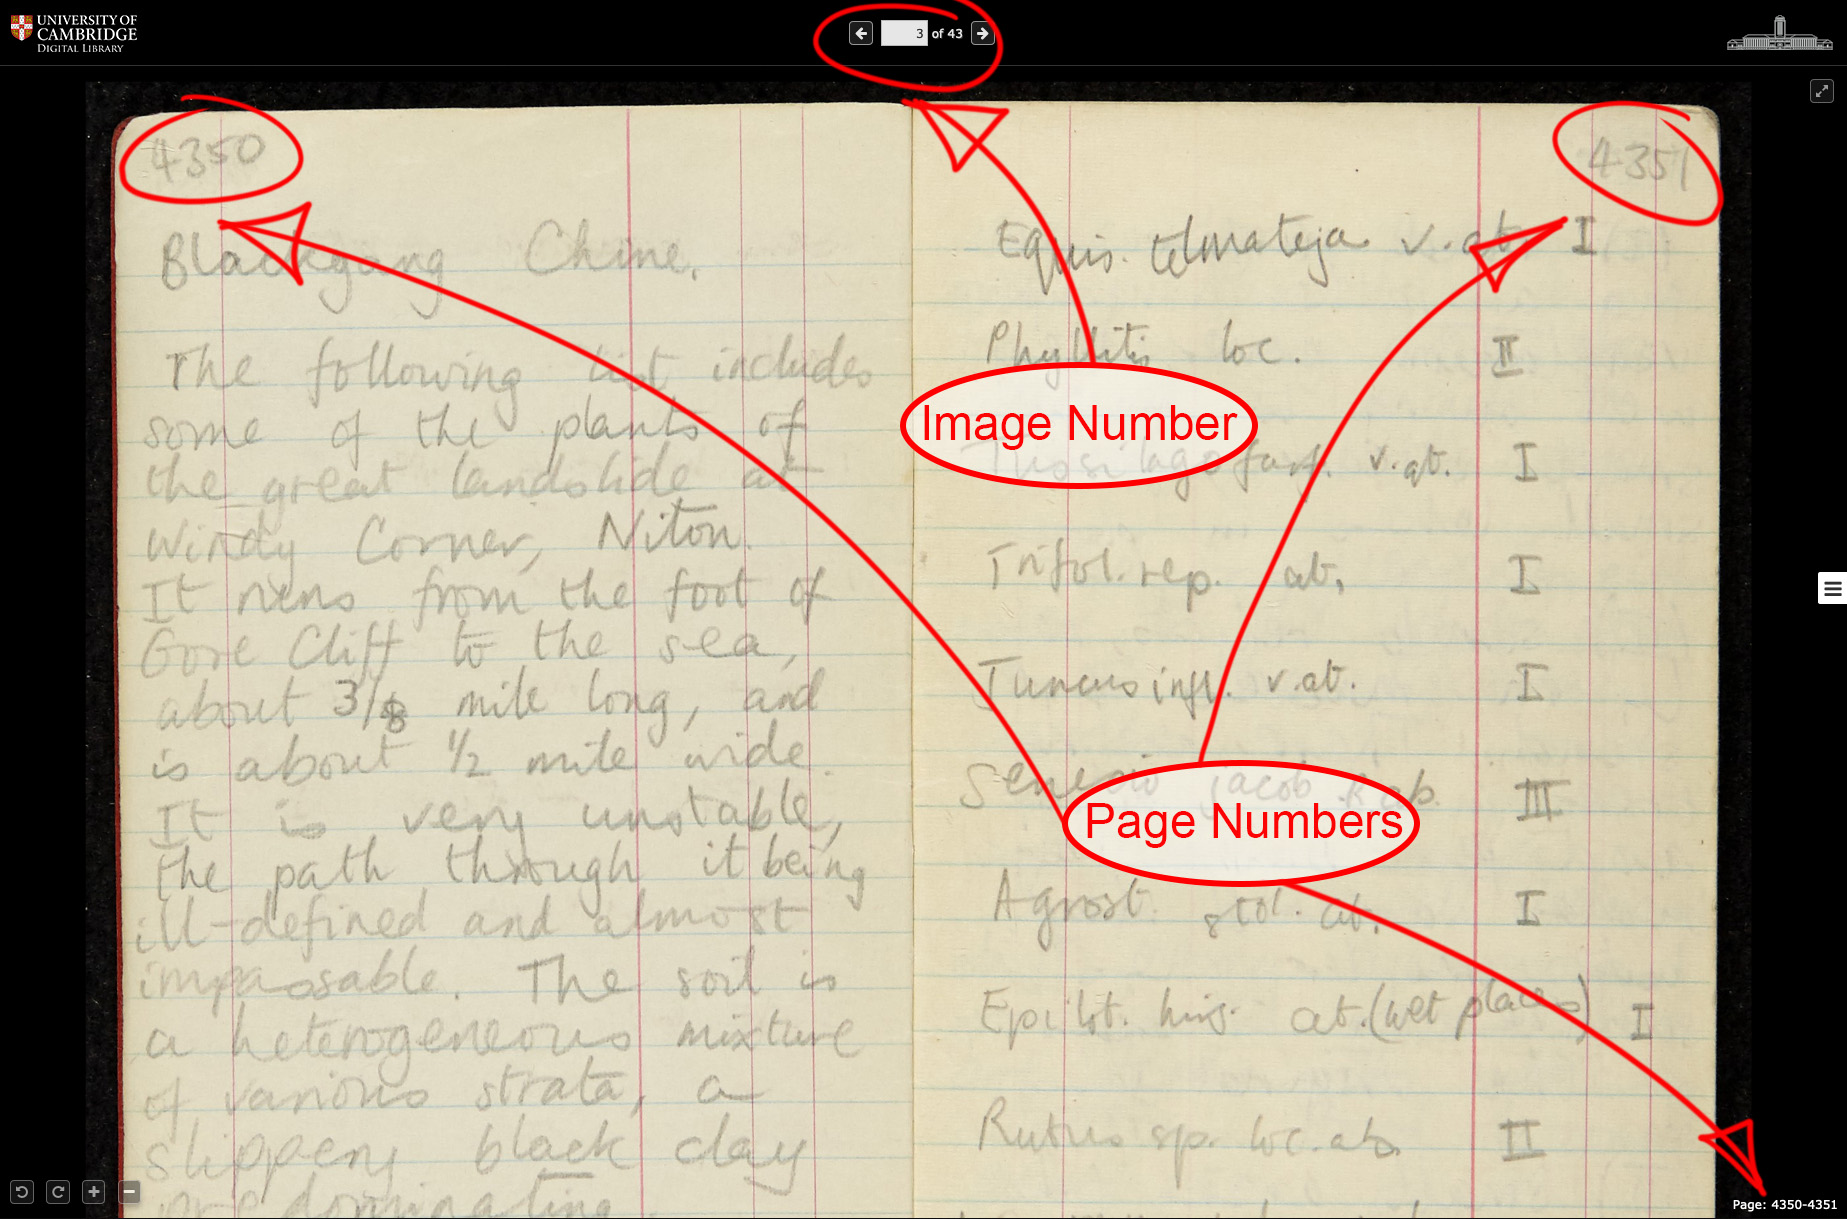 UNIVERSITY OF
CAMBRIDGE
DIGITAL LIBRARY
3 of 43
4350
Blackgang Chine.
The following list includes
some of the plants of
the great landslide at
Windy Corner, Niton.
It runs from the foot of
Gore Cliff to the sea,
about 3/8 mile long, and
is about 1/2 mile wide.
It is very unstable,
the path through it being
ill-defined and almost
impassable. The soil is
a heterogeneous mixture
of various strata, a
slippery black clay
predominating
4351
Equis. telmateja v.ab. I
Phyllitis loc. II
Tussilago farf. v.ab. I
Trifol. rep. ab. I
Juncus infl. v.ab. I
Senecio jacob. ab. III
Agrost. stol. ab. I
Epilob. hirs. ab. (wet places) I
Rubus sp. loc. ab. II
Image Number
Page Numbers
Page: 4350-4351